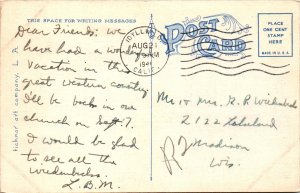 THIS SPACE FOR WRITING MESSAGES
Dear Friends: We
have had a wonderful
vacation in this
great western country
I'll be back in our
church on Sept 7.
I would be glad
to see all the
L.B.M.
tichnor art company, L. A.
POST CARD
IDYLLWILD
AUG 21
AM
194
CALIF.
PLACE
ONE CENT
STAMP
HERE
MADE IN U.S.A.
Mr & Mrs. G. R.
2122 Lakeland
Madison
Wis.